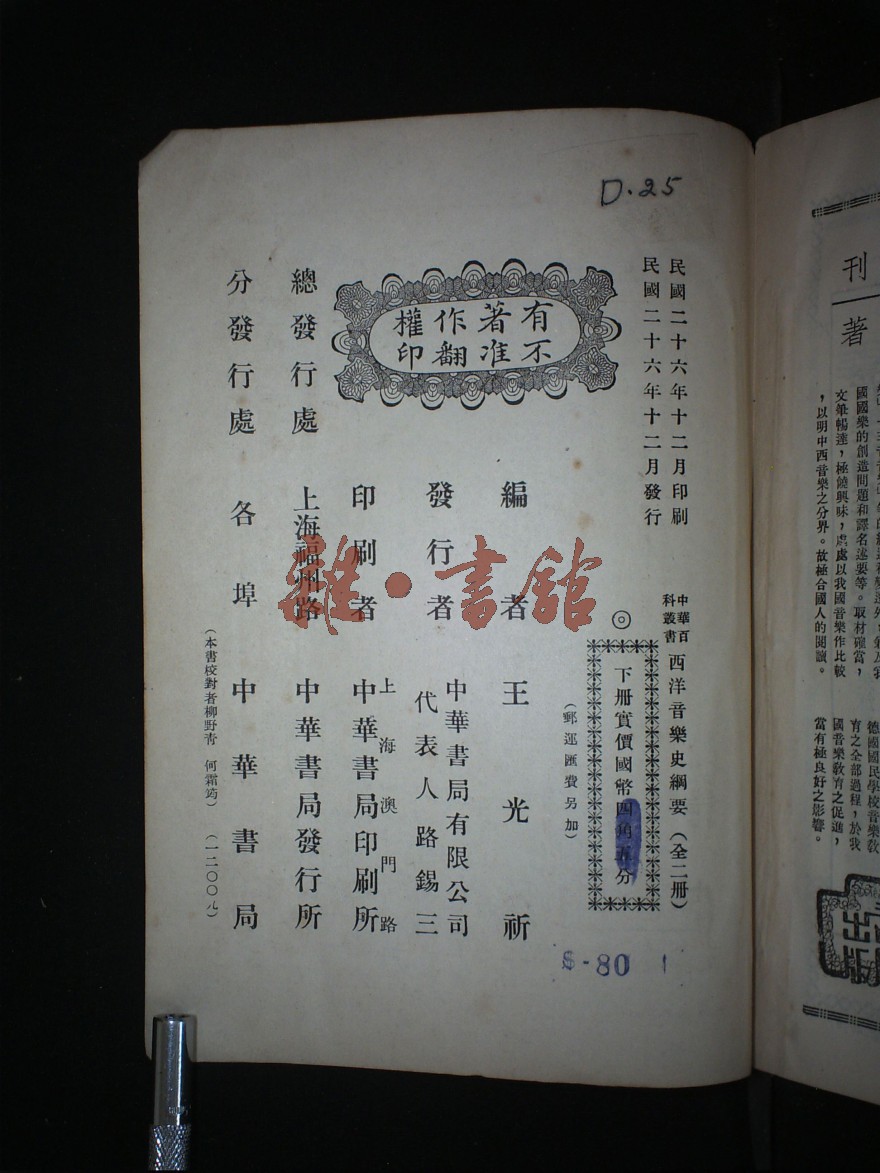 D.25
民國二十六年十二月印刷
民國二十六年十二月發行
中華百科叢書
西洋音樂史綱要(全二册)
◎
下册實價國幣四角五分
(郵運匯費另加)
有著作權
不准翻印
編者 王光祈
發行者 中華書局有限公司
代表人路錫三
印刷者 上海澳門路
中華書局印刷所
總發行處 上海福州路 中華書局發行所
分發行處 各埠 中華書局
(本書校對者柳野青 何霜筠)(一二〇〇九)
$-80
雜·書館
刊
著
國國樂的創造問題和譯名述要等。取材確當,
文筆暢達,極饒興味,處處以我國音樂作比較
,以明中西音樂之分界。故極合國人的閱讀。
德國國民學校音樂教
育之全部過程,於我
國音樂教育之促進,
當有極良好之影響。